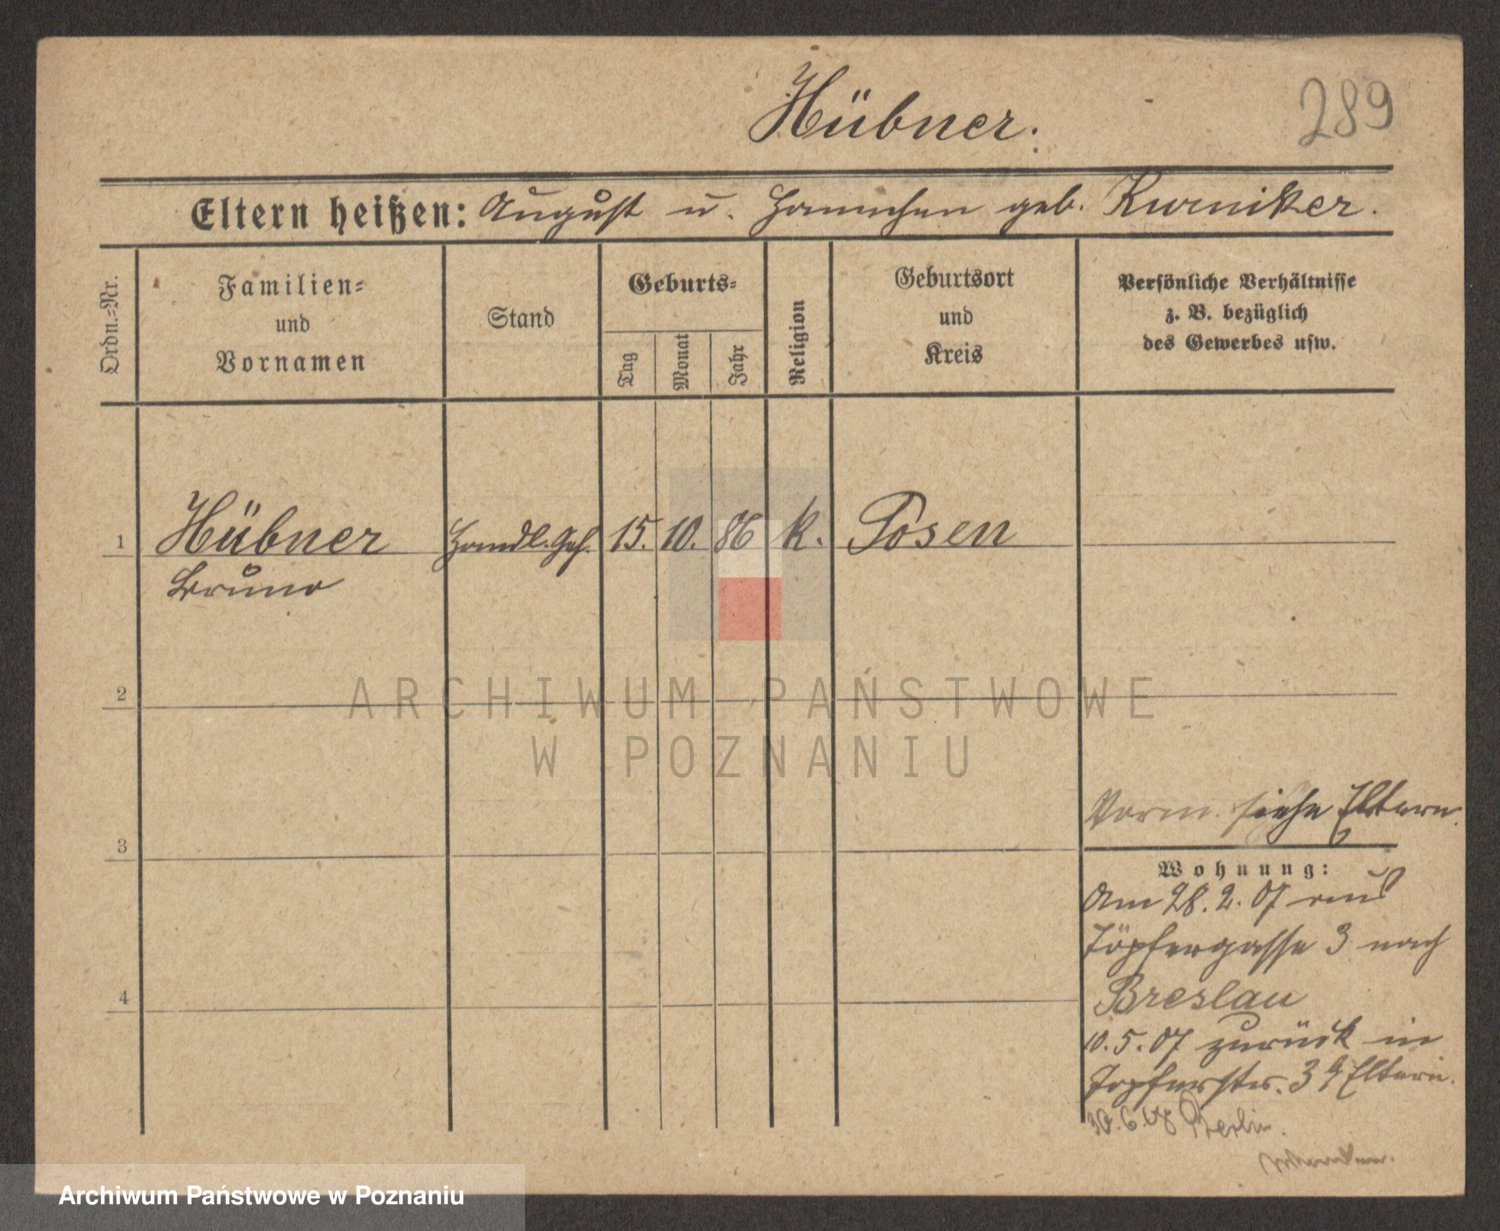 Hübner.
289
Eltern heißen: August u. Hannchen geb. Kurniker.
Ordn.-Nr.
Familien-
und
Vornamen
Stand
Geburts-
Tag
Monat
Jahr
Religion
Geburtsort
und
Kreis
Persönliche Verhältnisse
z. B. bezüglich
des Gewerbes usw.
1 Hübner Handl. Geh. 15. 10. 86 k. Posen
Bruno
2
ARCHIWUM PAŃSTWOWE
W POZNANIU
3
Vorm. siehe Eltern.
Wohnung:
Am 28.2.07 aus
Töpfergasse 3 nach
Breslau
4
10.5.07 zurück in
Töpferstr. 3 Eltern.
30.6.08 Berlin.
Archiwum Państwowe w Poznaniu